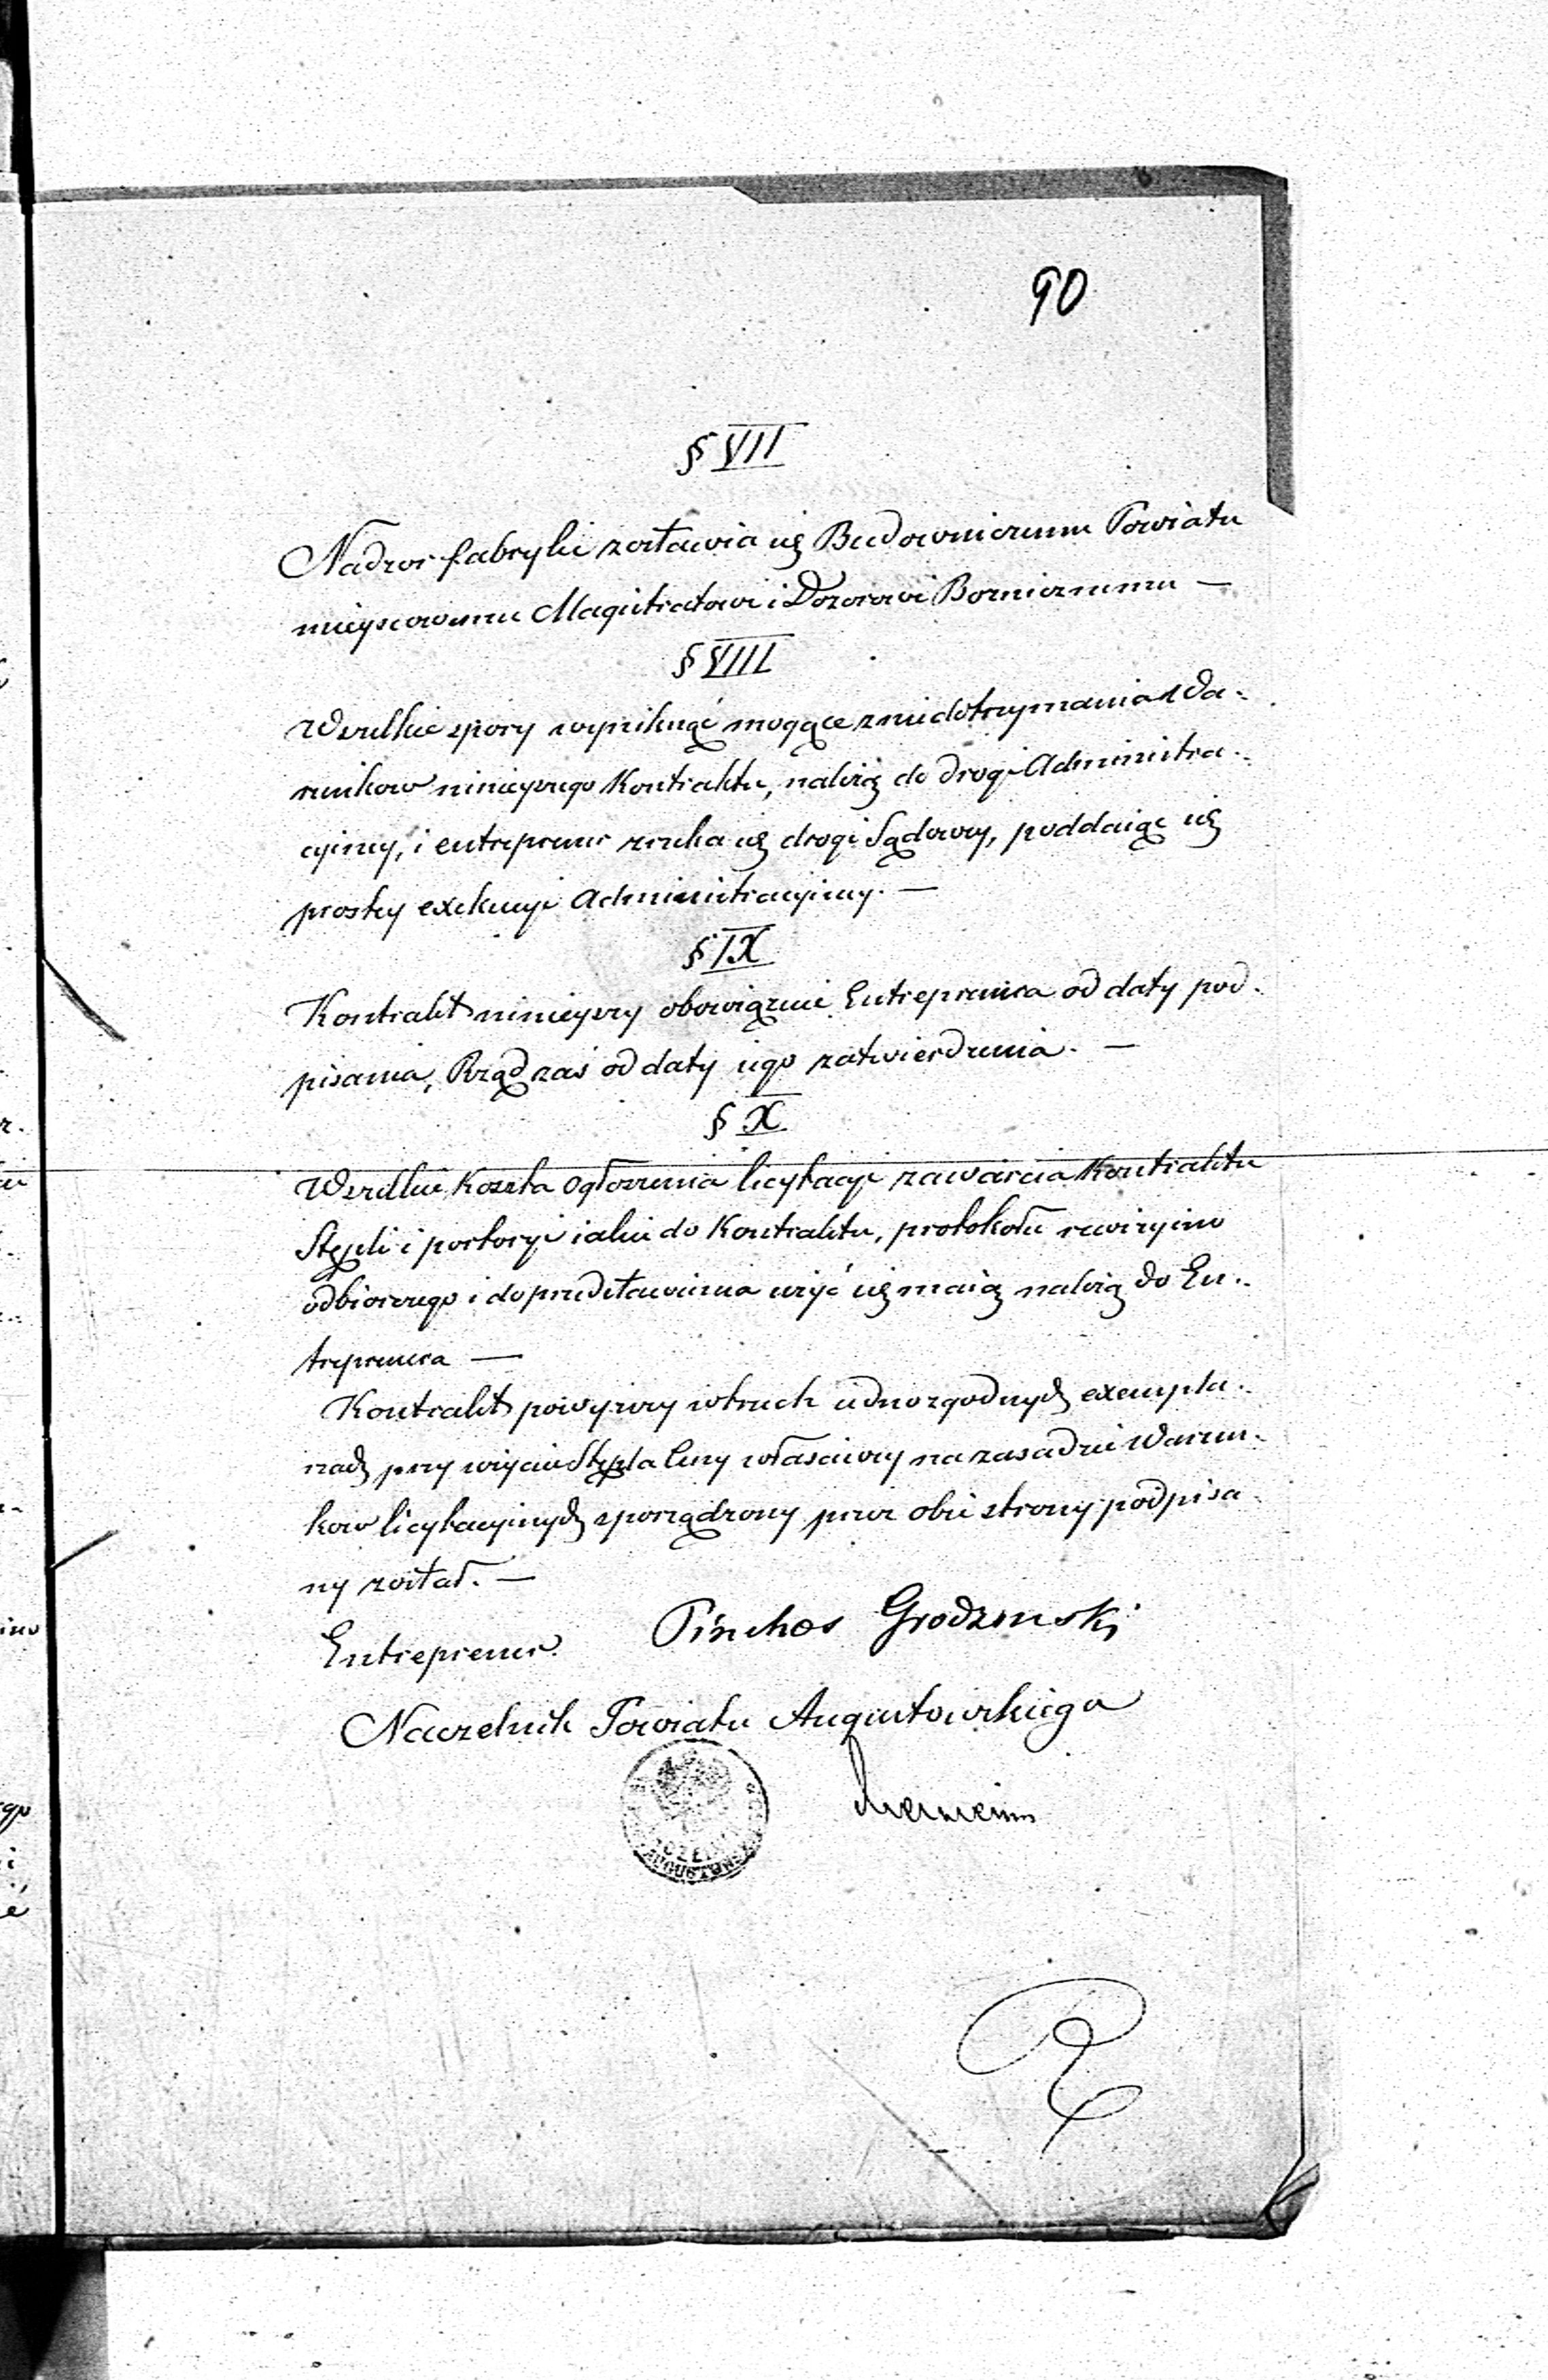 90
§ VII
Nadzor fabryki zostawia się Budowniczemu Powiatu
mieyscowemu Magistratowi i Dozorowi Boznicznemu —
§ VIII
Wszelkie spory wyniknąć mogące z niedotrzymania Wa-
runkow ninieyszego Kontraktu, należą do drogi Administra-
cyiney, i entreprener zrzeka się drogi Sądowey, poddaiąc się
prostey exekucyi Administracyiney. —
§ IX
Kontrakt ninieyszy obowiązuie Entreprenera od daty pod-
pisania, Rząd zaś od daty iego zatwierdzenia. —
§ X
Wszelkie Koszta ogłoszenia licytacyi zawarcia Kontraktu
Stępli i portoryi iakie do Kontraktu, protokołu rewizyino
odbiorczego i do przedstawienia użyć się maią należą do En-
treprenera —
Kontrakt powyższy w trzech iednozgodnych exempla-
rzach przy użyciu Stępla Ceny właściwey na zasadzie Warun-
kow licytacyinych sporządzony przez obie strony podpisa-
ny został. —
Entreprener Pinchos Grodzinski
Naczelnik Powiatu Augustowskiego